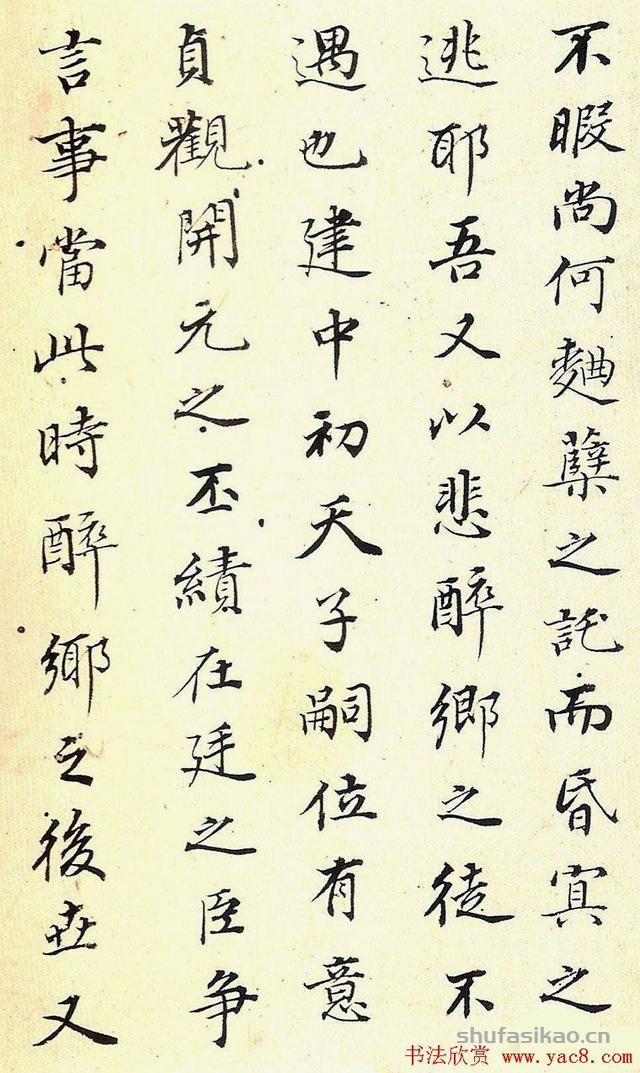 不暇尚何麹蘖之託而昏冥之
逃耶吾又以悲醉鄉之徒不
遇也建中初天子嗣位有意
貞觀開元之丕績在廷之臣爭
言事當此時醉鄉之後世又
shufasikao.cn
书法欣赏 www.yac8.com